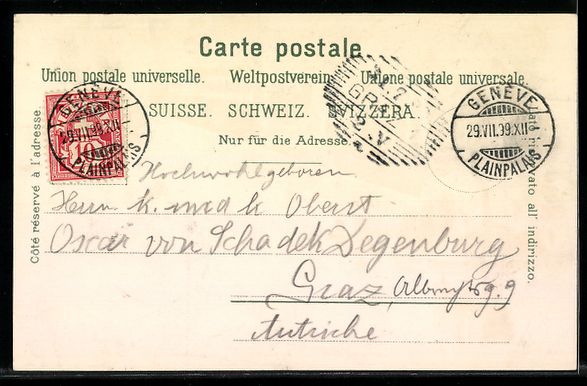 Carte postale.
Union postale universelle. Weltpostverein. Unione postale universale.
SUISSE. SCHWEIZ. SVIZZERA.
Nur für die Adresse.
Côté réservé à l'adresse.
all' indirizzo.
GENÈVE
29.VII.99.XII
PLAINPALAIS
GENÈVE
29.VII.99.XII
PLAINPALAIS
10
Hochwohlgeboren
Herrn k. und k. Oberst
Oscar von Schadek Degenburg
Graz
9
Autriche